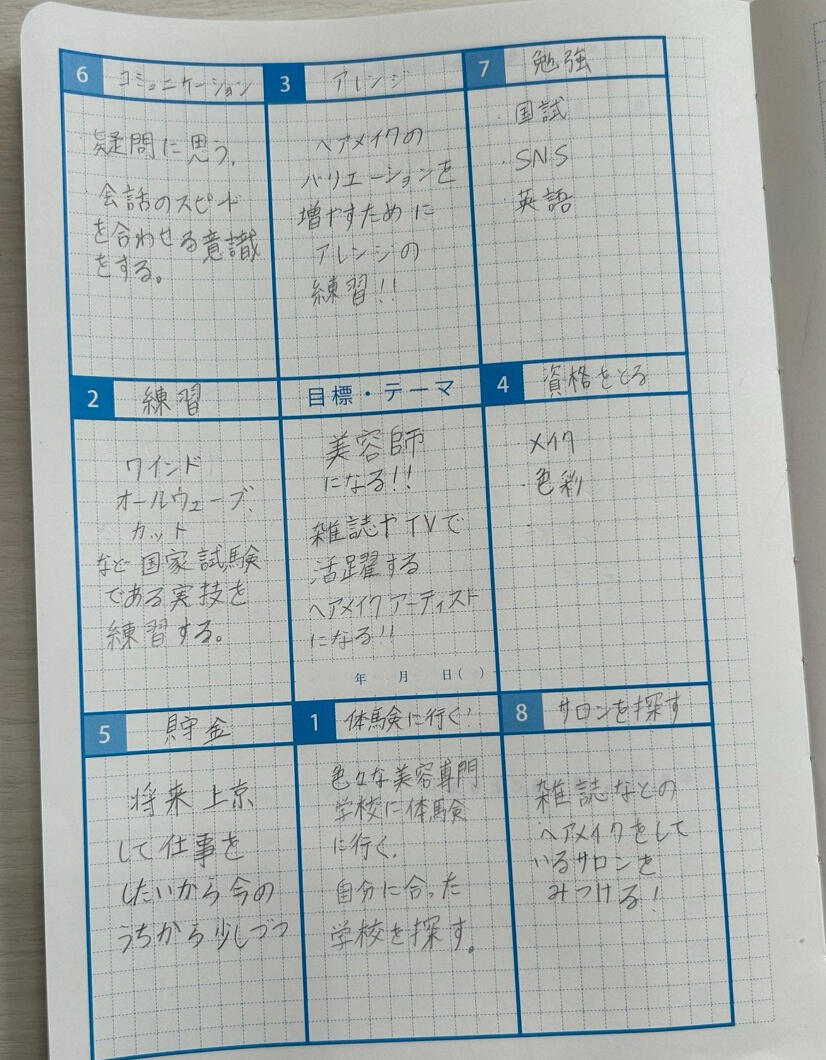 6 コミュニケーション
疑問に思う。
会話のスピード
を合わせる意識
をする。
3 アレンジ
ヘアメイクの
バリエーションを
増やすために
アレンジの
練習!!
7 勉強
・国試
・SNS
・英語
2 練習
ワインド
オールウェーブ、
カット
など国家試験
である実技を
練習する。
目標・テーマ
美容師
になる!!
雑誌やTVで
活躍する
ヘアメイクアーティスト
になる!!
年 月 日( )
4 資格をとる
・メイク
・色彩
・
5 貯金
将来上京
して仕事を
したいから今の
うちから少しづつ
1 体験に行く!
色々な美容専門
学校に体験
に行く。
自分に合った
学校を探す。
8 サロンを探す
雑誌などの
ヘアメイクをして
いるサロンを
みつける!